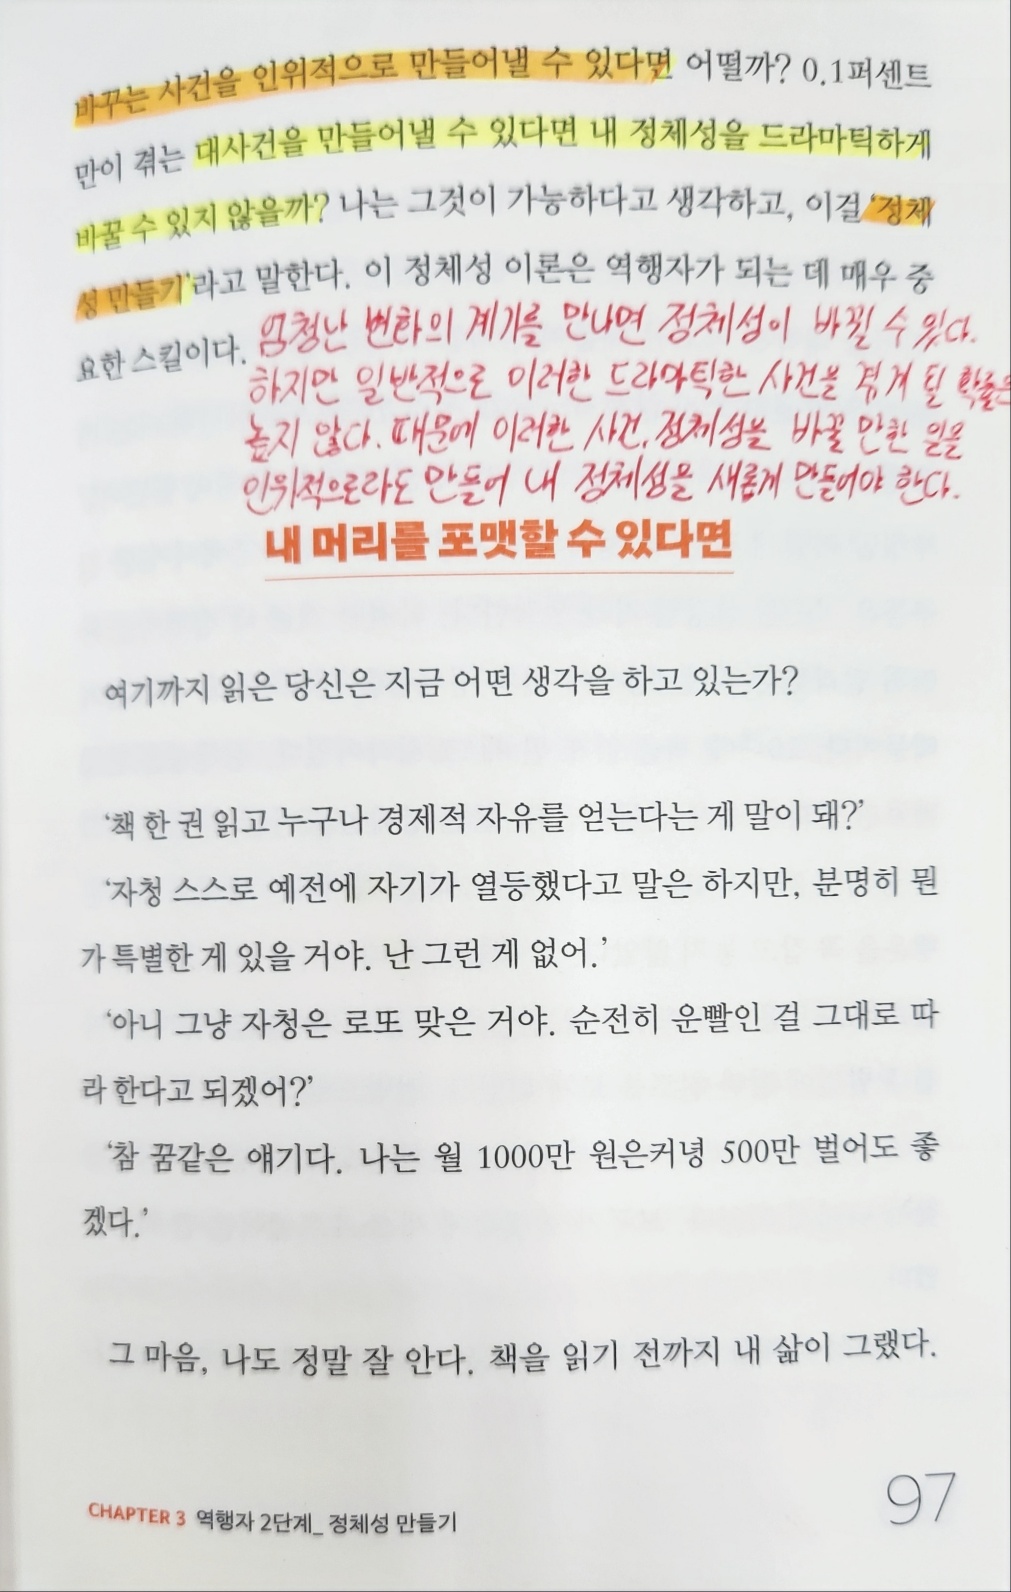 바꾸는 사건을 인위적으로 만들어낼 수 있다면 어떨까? 0.1퍼센트
만이 겪는 대사건을 만들어낼 수 있다면 내 정체성을 드라마틱하게
바꿀 수 있지 않을까? 나는 그것이 가능하다고 생각하고, 이걸 ‘정체
성 만들기’라고 말한다. 이 정체성 이론은 역행자가 되는 데 매우 중
요한 스킬이다.
엄청난 변화의 계기를 만나면 정체성이 바뀔 수 있다.
하지만 일반적으로 이러한 드라마틱한 사건을 겪게 될 확률은
높지 않다. 때문에 이러한 사건, 정체성을 바꿀 만한 일을
인위적으로라도 만들어 내 정체성을 새롭게 만들어야 한다.
내 머리를 포맷할 수 있다면
여기까지 읽은 당신은 지금 어떤 생각을 하고 있는가?
‘책 한 권 읽고 누구나 경제적 자유를 얻는다는 게 말이 돼?’
‘자청 스스로 예전에 자기가 열등했다고 말은 하지만, 분명히 뭔
가 특별한 게 있을 거야. 난 그런 게 없어.’
‘아니 그냥 자청은 로또 맞은 거야. 순전히 운빨인 걸 그대로 따
라 한다고 되겠어?’
‘참 꿈같은 얘기다. 나는 월 1000만 원은커녕 500만 벌어도 좋
겠다.’
그 마음, 나도 정말 잘 안다. 책을 읽기 전까지 내 삶이 그랬다.
CHAPTER 3 역행자 2단계_ 정체성 만들기
97